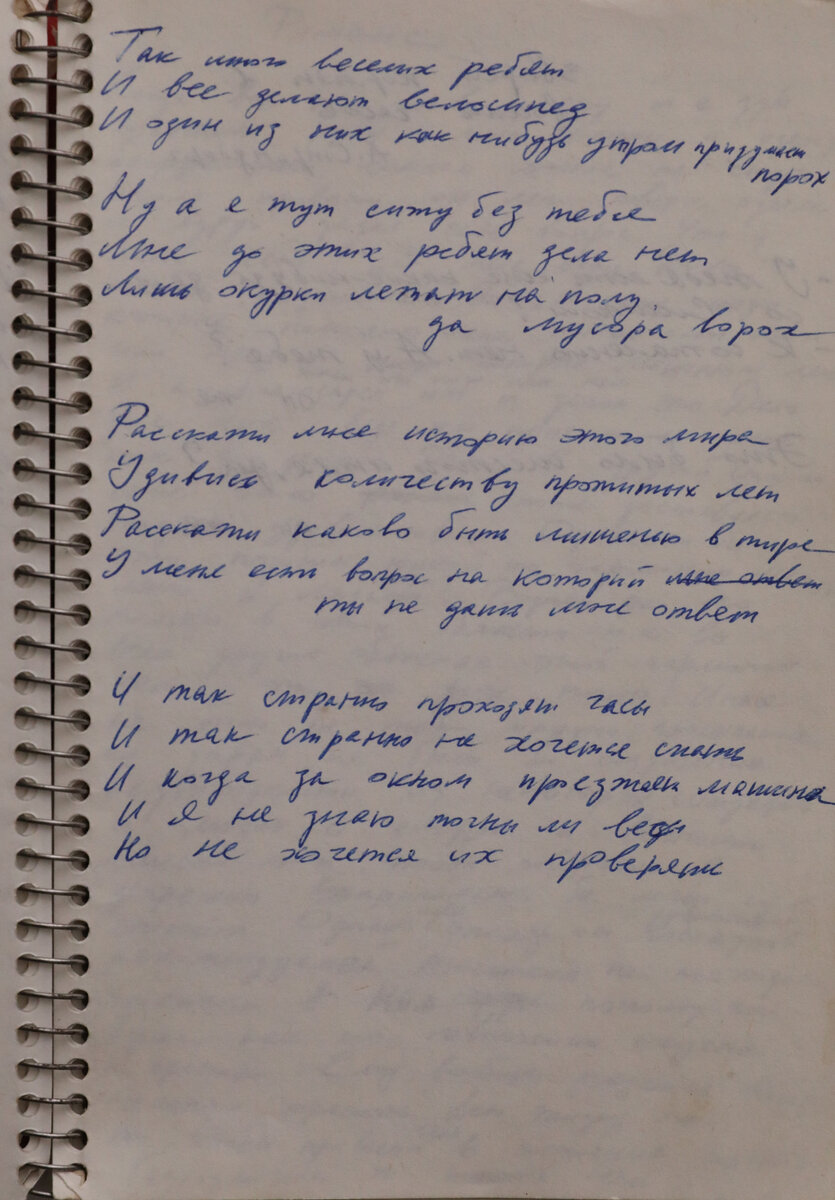 Так много веселых ребят
И все делают велосипед
И один из них как нибудь утром придумает
порох
Ну а я тут сижу без тебя
Мне до этих ребят дела нет
Лишь окурки лежат на полу
да мусора ворох
Расскажи мне историю этого мира
Удивись количеству прожитых лет
Расскажи каково быть мишенью в тире
У меня есть вопрос на который мне ответ
ты не дашь мне ответ
И так странно проходят часы
И так странно не хочется спать
И когда за окном проезжает машина
И я не знаю точны ли весы
Но не хочется их проверять